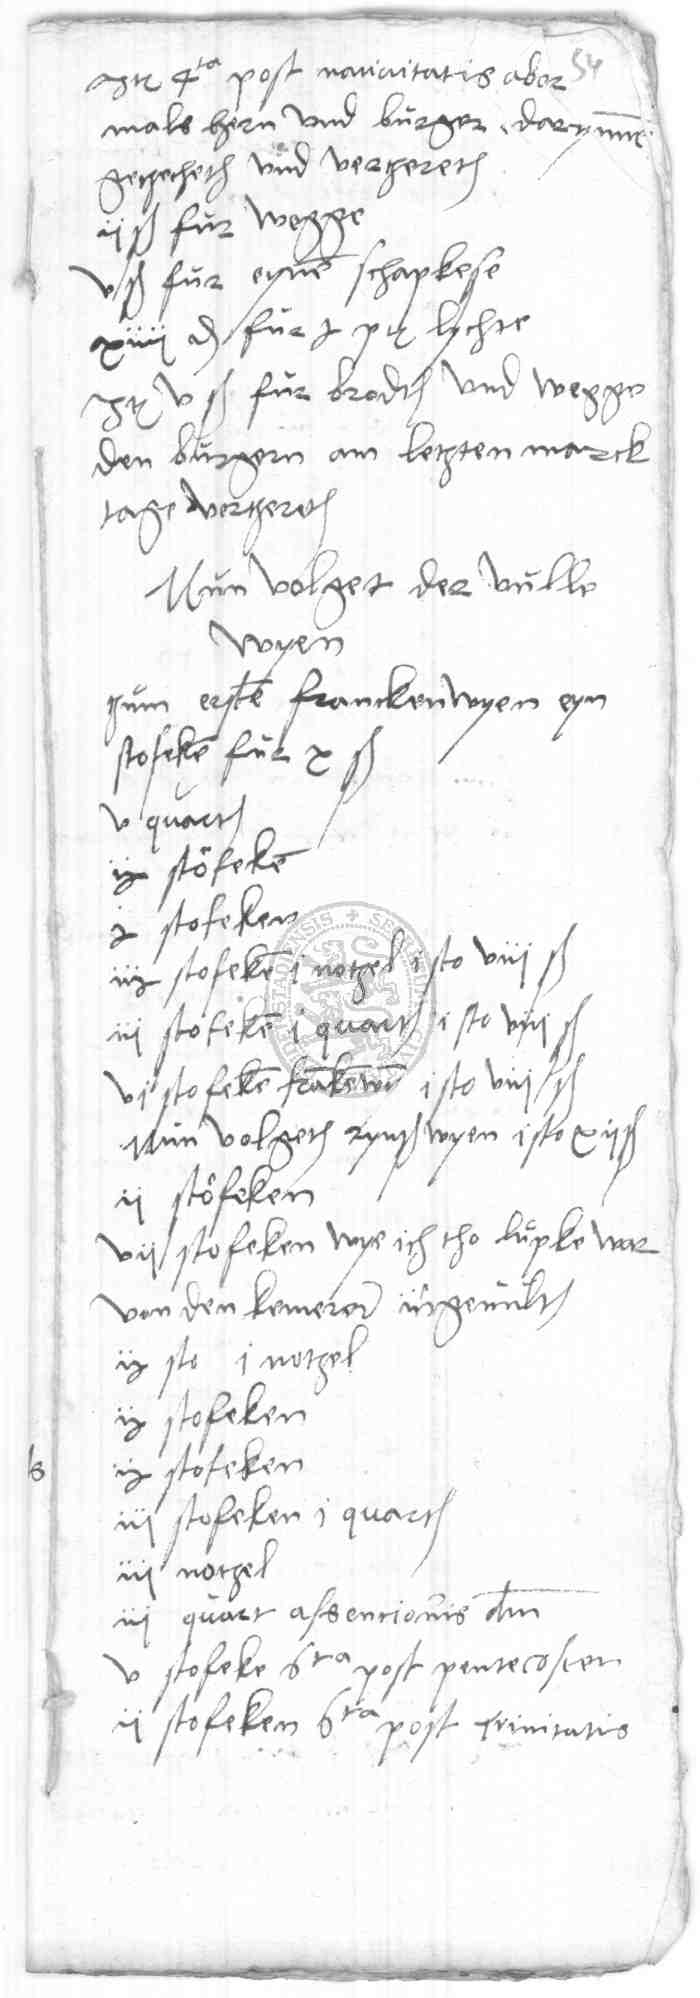 54
Itē 4ta post nativitatis aber
mals hern vnd bürger darynnē
getzecheth vnd vertzereth
ij ß für wegge
v ß für eynē schapkese
xiiij d für j pt lychte
Itē v ß für brodth vnd wegge
den bürgern am letzten marck
tage vertzereth
Nün volget der vulle
wyen
tzüm erstē franckenwyen eyn
stofekē für x ß
v quarth
ij stöfekē
j stofeken
iij stofekē j notzel j sto viij ß
iij stofekē j quarth j sto viij ß
vj stofekē frākēwī j sto viij ß
Nün volgeth rynßwyen j sto xij ß
ij stöfeken
vij stofeken wye ich tho lüpke war
von den kemerer
ij sto j notzel
ij stofeken
ij stofeken
iij stofeken j quarth
iij notzel
iij quart assencionis dm
v stofeke 6ta post pentecosten
ij stofeken 6ta post trinitatis